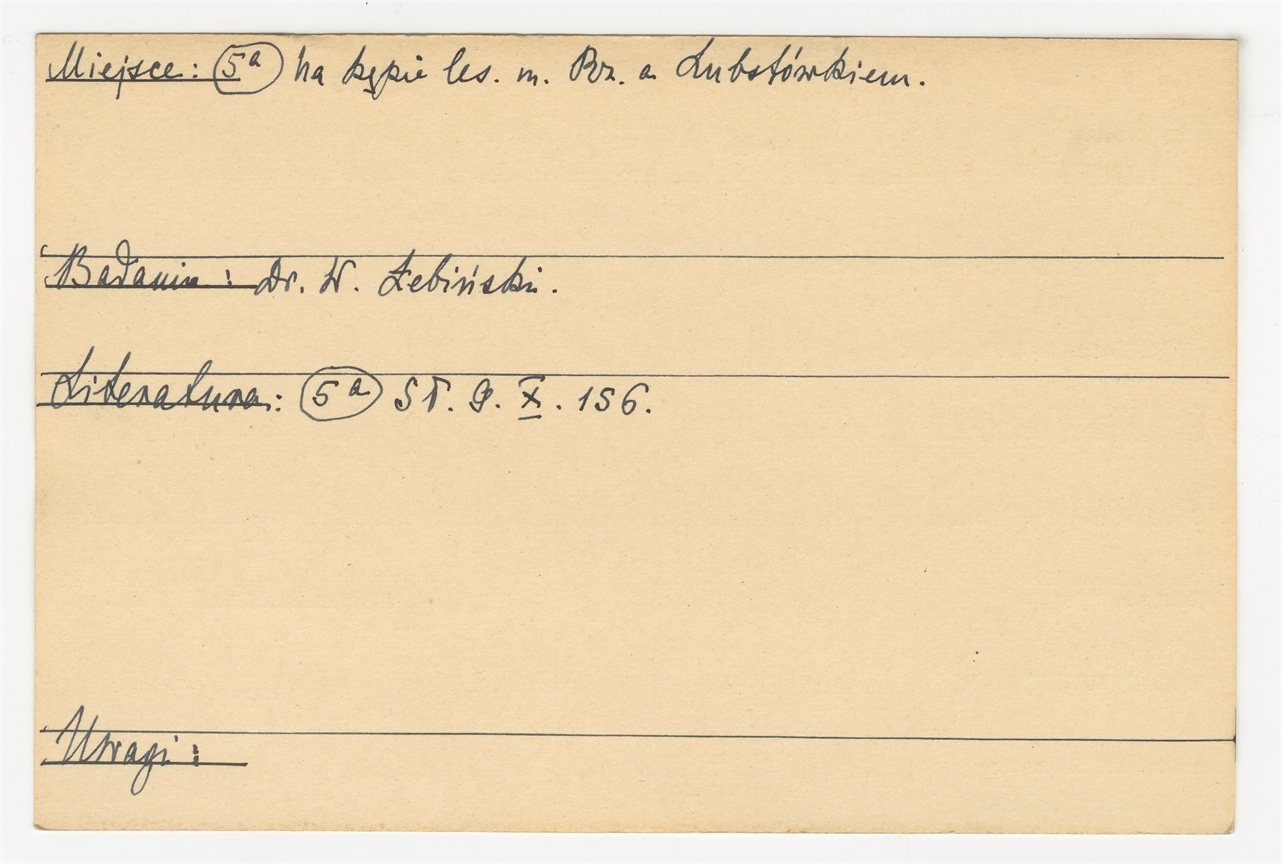 Miejsce: 5a na kępie les. m. Rz. a Lubstówkiem.
Badania: Dr. W. Łebiński.
Literatura: 5a ST. G. X. 156.
Uwagi: